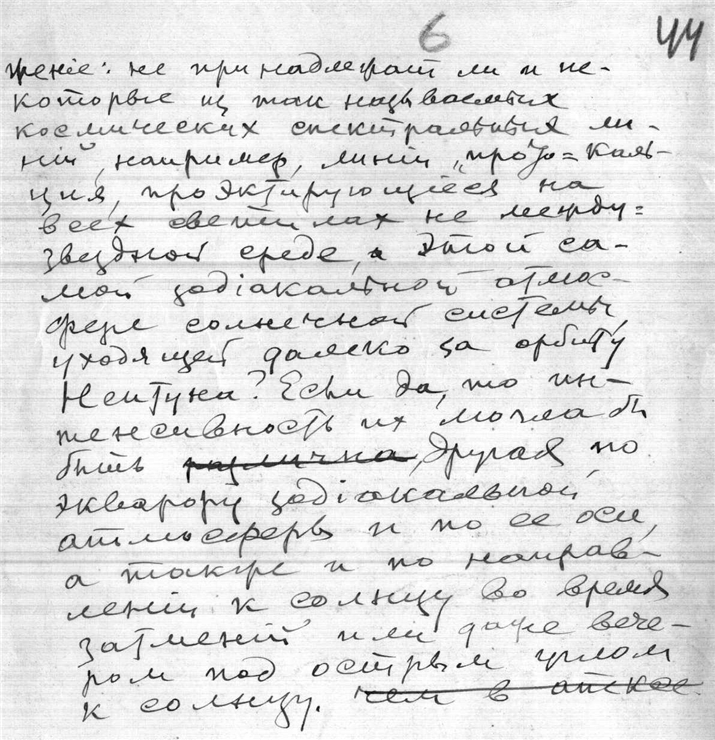 6
44
женіе: не принадлежат ли и не-
которые из так называемых
космических спектральных ли-
ній, например, линіи „прото=каль-
ция, проэктирующіеся на
всех светилах не между=
звездной среде, а этой са-
мой зодіакальной атмос-
фере солнечной системы,
уходящей далеко за орбиту
Нептуна? Если да, то ин-
тенсивность их могла бы
быть различна, другая по
экварору зодіакальной
атмосферы и по ее оси,
а также и по направ-
леніи к солнцу во время
затменій или даже вече-
ром под острым углом
к солнцу. чем в